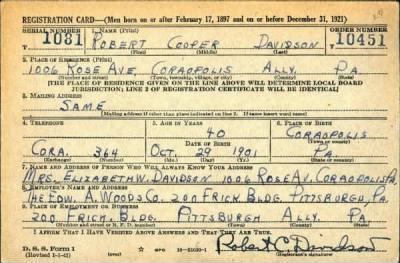 REGISTRATION CARD—(Men born on or after February 17, 1897 and on or before December 31, 1921)
SERIAL NUMBER 1. NAME (Print) ORDER NUMBER
T 1081 ROBERT COOPER DAVIDSON T 10451
(First) (Middle) (Last)
2. PLACE OF RESIDENCE (Print)
1006 ROSE AVE, CORAOPOLIS ALLY. PA.
(Number and street) (Town, township, village, or city) (County) (State)
[THE PLACE OF RESIDENCE GIVEN ON THE LINE ABOVE WILL DETERMINE LOCAL BOARD
JURISDICTION; LINE 2 OF REGISTRATION CERTIFICATE WILL BE IDENTICAL]
3. MAILING ADDRESS
SAME
[Mailing address if other than place indicated on line 2. If same insert word same]
4. TELEPHONE 5. AGE IN YEARS 6. PLACE OF BIRTH
40 CORAOPOLIS
DATE OF BIRTH (Town or county)
CORA. 364 OCT. 29 1901 PA
(Exchange) (Number) (Mo.) (Day) (Yr.) (State or country)
7. NAME AND ADDRESS OF PERSON WHO WILL ALWAYS KNOW YOUR ADDRESS
MRS. ELIZABETH W. DAVIDSON 1006 ROSE AV. CORAOPOLIS PA.
8. EMPLOYER'S NAME AND ADDRESS
THE EDW. A. WOODS CO. 200 FRICK BLDG. PITTSBURGH, PA.
9. PLACE OF EMPLOYMENT OR BUSINESS
200 FRICK. BLDG. PITTSBURGH ALLY. PA.
(Number and street or R. F. D. number) (Town) (County) (State)
I AFFIRM THAT I HAVE VERIFIED ABOVE ANSWERS AND THAT THEY ARE TRUE.
D. S. S. Form 1
(Revised 1-1-42) GPO 16—21630-1 Robert C. Davidson
(Registrant's signature)